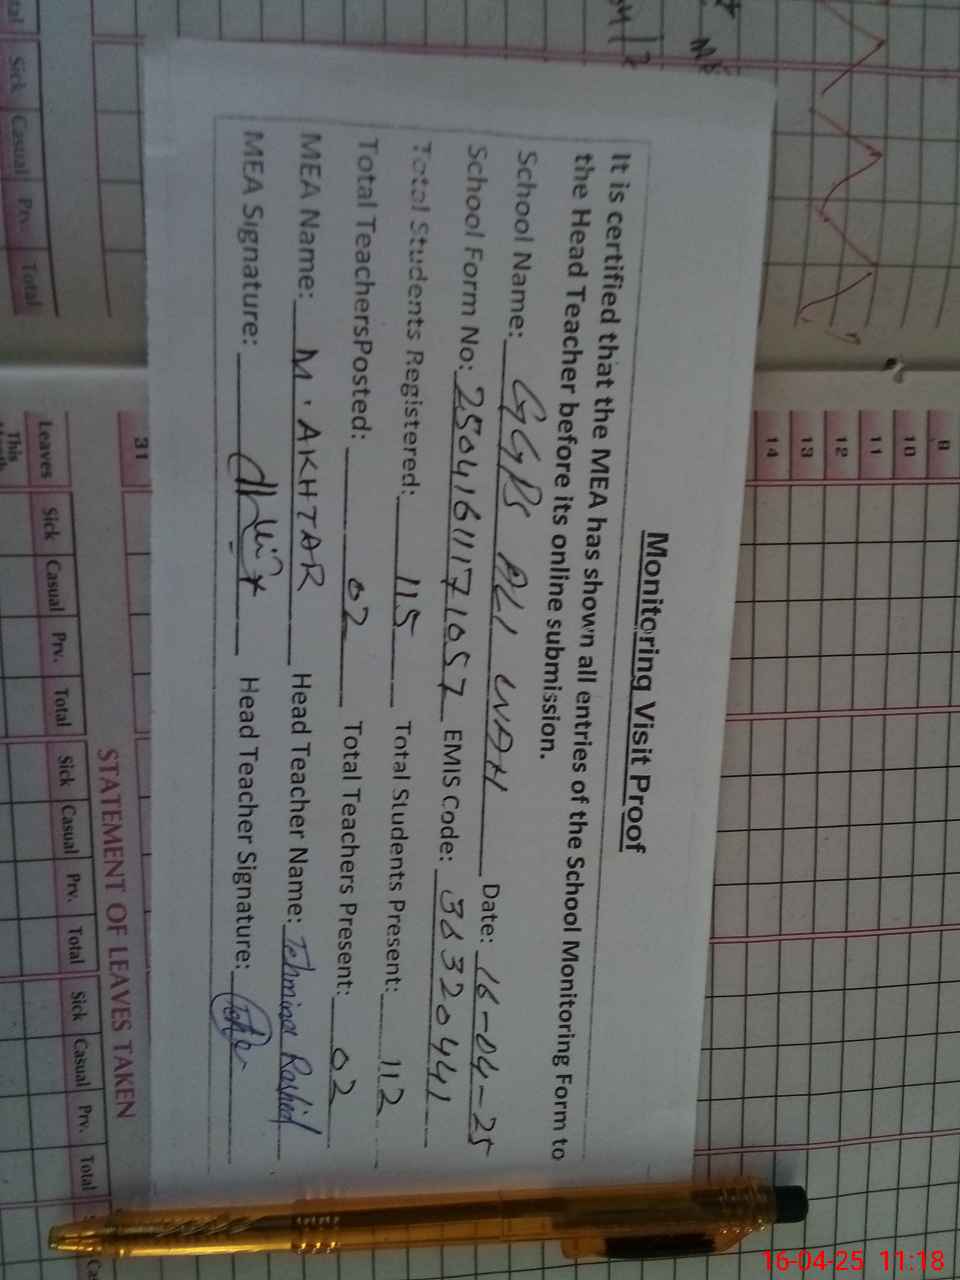 Monitoring Visit Proof
It is certified that the MEA has shown all entries of the School Monitoring Form to
the Head Teacher before its online submission.
School Name: GGPS ALI WAH Date: 16-04-25
School Form No: 25041611171057 EMIS Code: 36320441
Total Students Registered: 115 Total Students Present: 112
Total TeachersPosted: 02 Total Teachers Present: 02
MEA Name: M. AKHTAR Head Teacher Name: Tehmina Rashid
MEA Signature: Head Teacher Signature:
9
10
11
12
13
14
31
STATEMENT OF LEAVES TAKEN
Leaves Sick Casual Prv. Total Sick Casual Prv. Total Sick Casual Prv. Total
This
Sick Casual Prv. Total
16-04-25 11:18